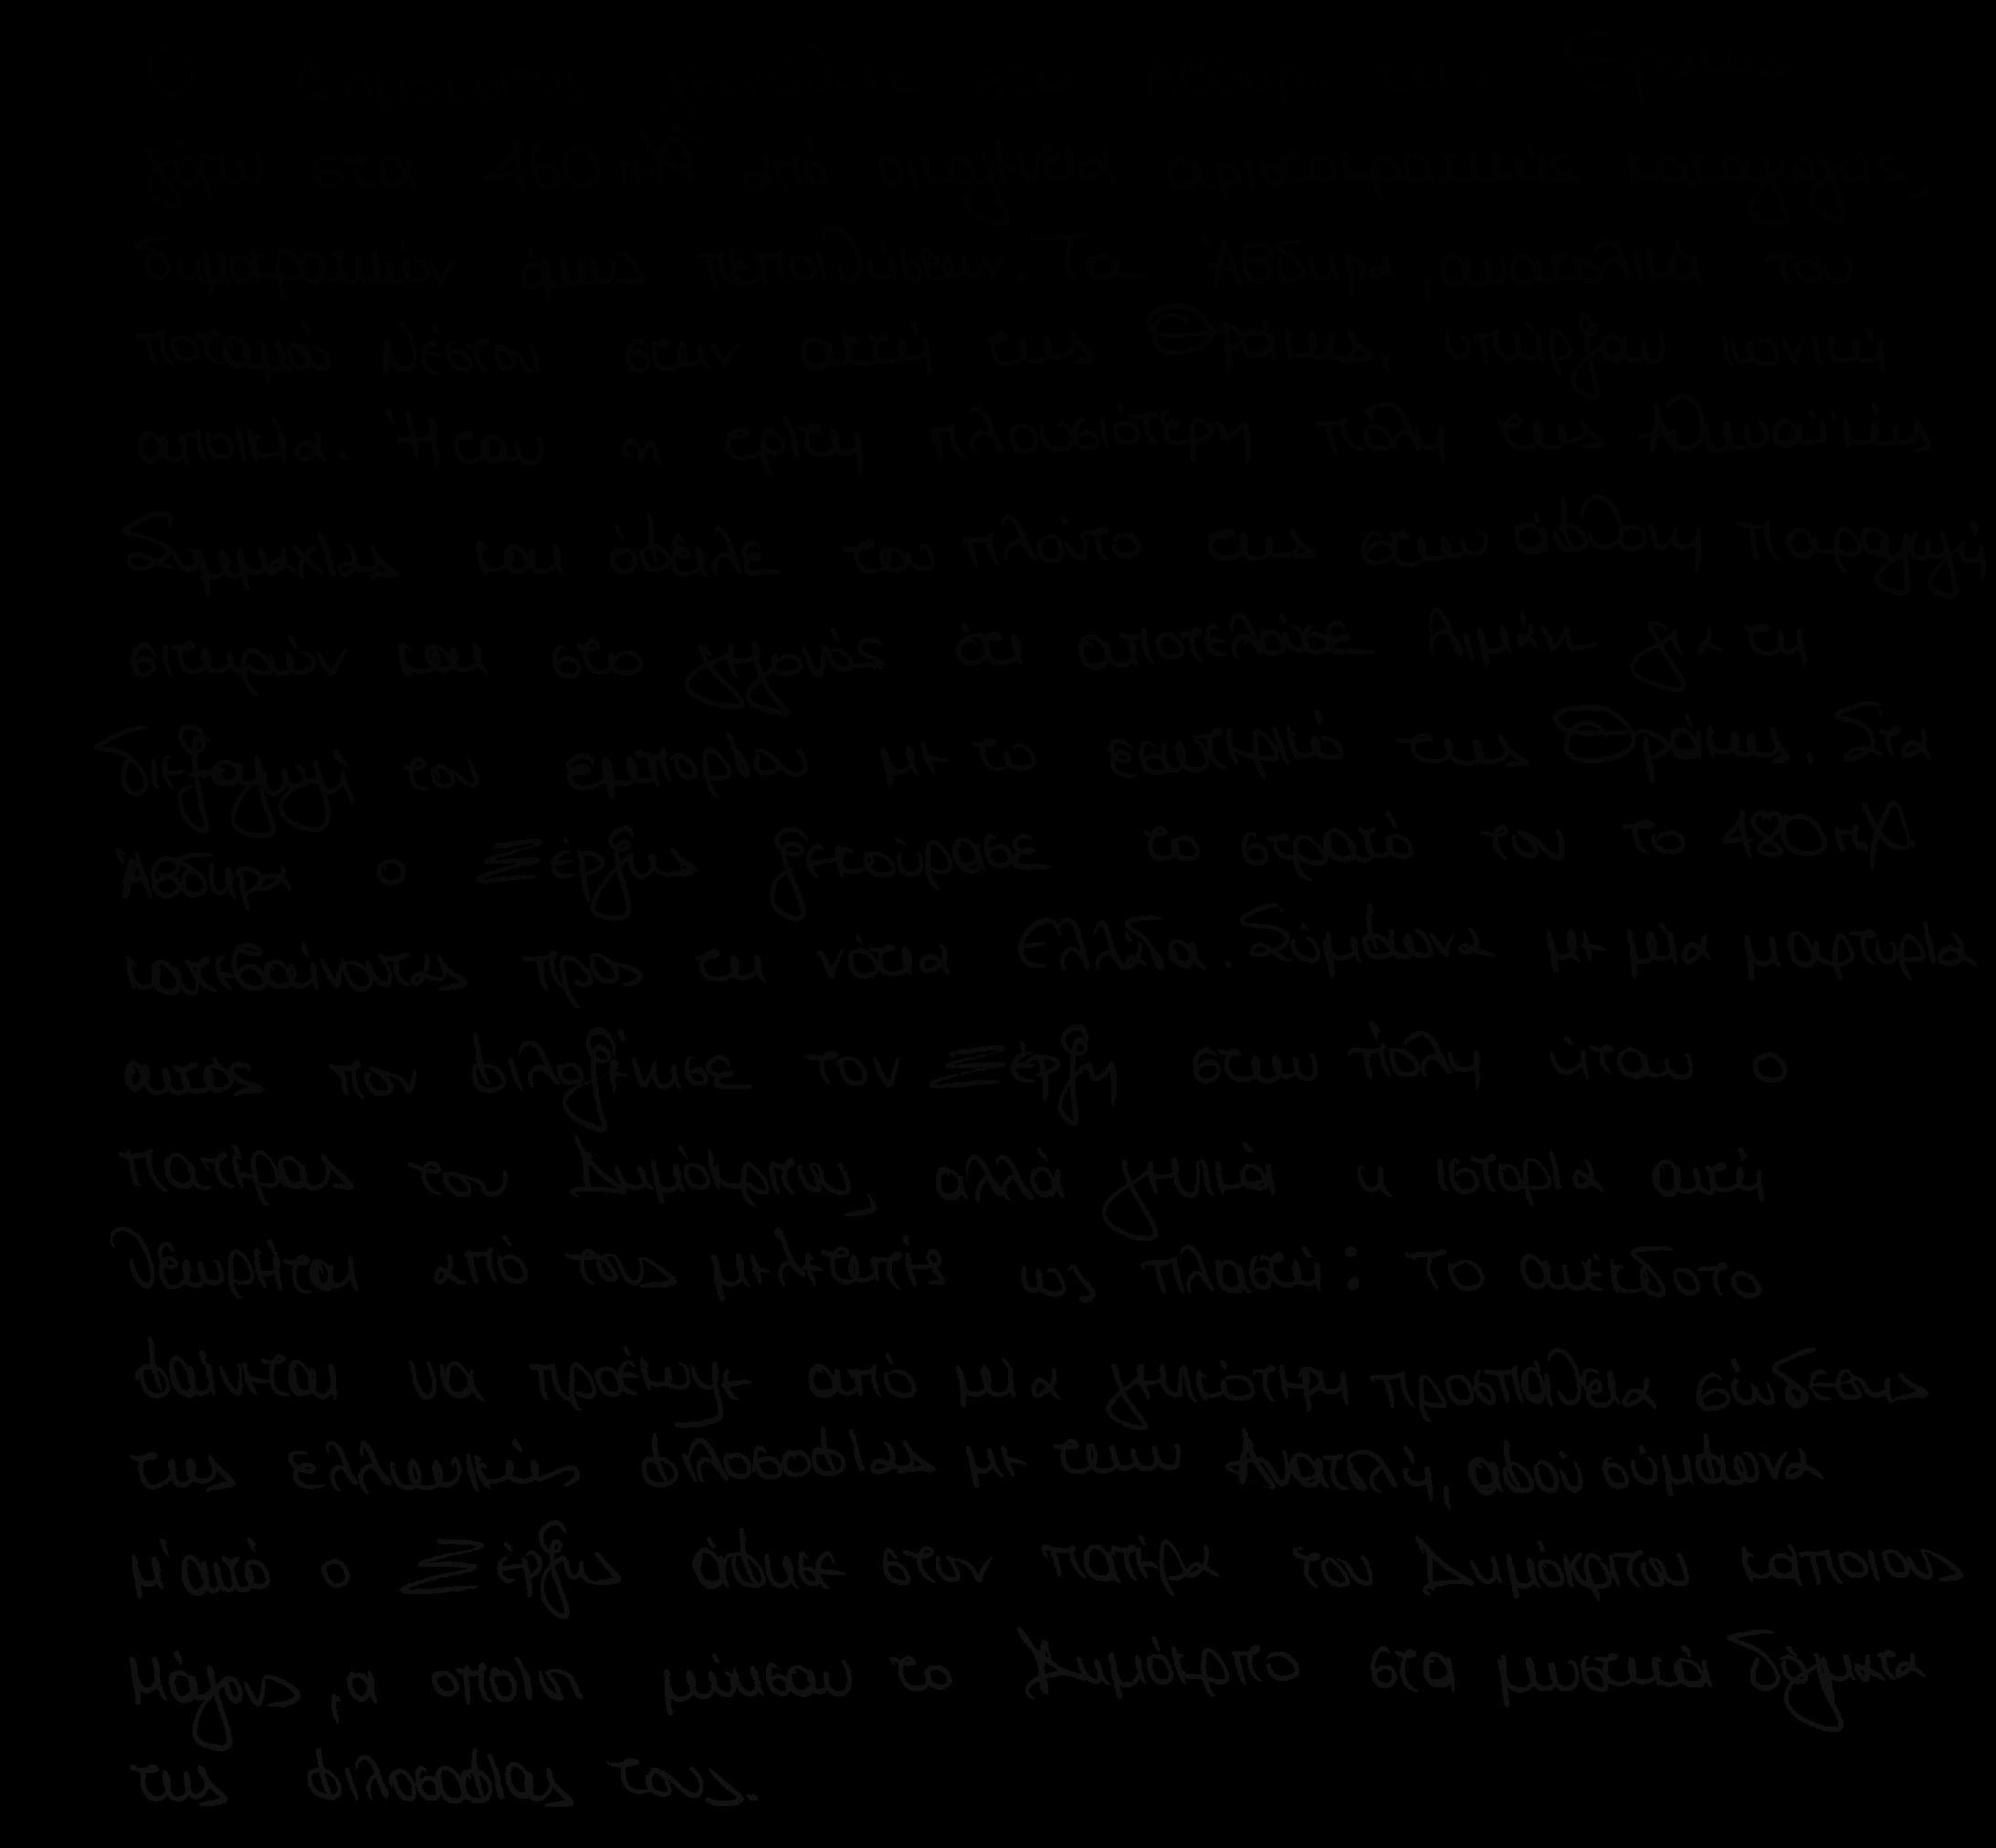 Ο Δημόκριτος γεννήθηκε στα Άβδηρα της Θράκης
γύρω στα 460 π.Χ. από οικογένεια αριστοκρατικής καταγωγής,
δημοκρατικών όμως πεποιθήσεων. Τα Άβδηρα, ανατολικά του
ποταμού Νέστου στην ακτή της Θράκης, υπήρξαν ιωνική
αποικία. Ήταν η τρίτη πλουσιότερη πόλη της Αθηναϊκής
Συμμαχίας και όφειλε τον πλούτο της στην άφθονη παραγωγή
σιτηρών και στο γεγονός ότι αποτελούσε λιμάνι για τη
διεξαγωγή του εμπορίου με το εσωτερικό της Θράκης. Στα
Άβδηρα ο Ξέρξης ξεκούρασε το στρατό του το 480 π.Χ.
κατεβαίνοντας προς τη νότια Ελλάδα. Σύμφωνα με μία μαρτυρία
αυτός που φιλοξένησε τον Ξέρξη στην πόλη ήταν ο
πατέρας του Δημόκριτου, αλλά γενικά η ιστορία αυτή
θεωρείται από τους μελετητές ως πλαστή: το ανέκδοτο
φαίνεται να προέκυψε από μία γενικότερη προσπάθεια σύνδεσης
της ελληνικής φιλοσοφίας με την Ανατολή, αφού σύμφωνα
μ'αυτό ο Ξέρξης άφησε στον πατέρα του Δημόκριτου κάποιους
Μάγους, οι οποίοι μύησαν το Δημόκριτο στα μυστικά δόγματα
της φιλοσοφίας τους.